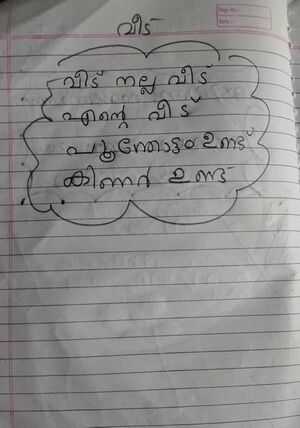 Page No.:
Date:
വീട്
വീട് നല്ല വീട്
എന്റെ വീട്
പൂന്തോട്ടം ഉണ്ട്
കിണർ ഉണ്ട്